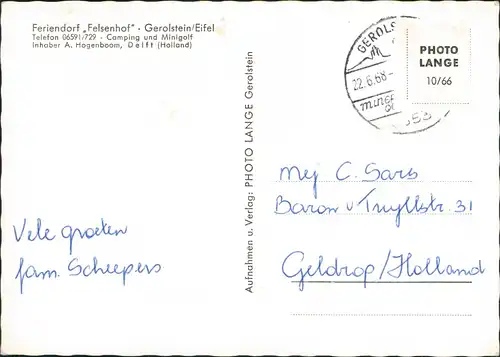 Feriendorf „Felsenhof" · Gerolstein/Eifel
Telefon 06591/729 - Camping und Minigolf
Inhaber A. Hogenboom, Delft (Holland)
GEROLS
22.6.68-
miner
PHOTO
LANGE
10/66
Aufnahmen u. Verlag: PHOTO LANGE Gerolstein
Mej C. Sars
Baron v Tuyllstr. 31
Geldrop/Holland
Vele groeten
fam. Scheepers